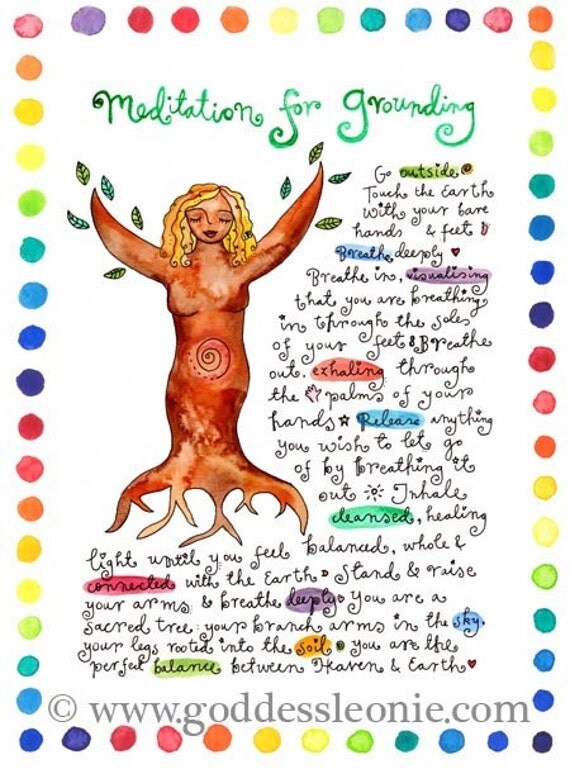 Meditation for Grounding
Go outside
Touch the Earth
with your bare
hands & feet
Breathe deeply
Breathe in, visualising
that you are breathing
in through the soles
of your feet & Breathe
out, exhaling through
the palms of your
hands Release anything
you wish to let go
of by breathing it
out Inhale
cleansed, healing
light until you feel balanced, whole &
connected with the Earth. Stand & raise
your arms & breathe deeply. You are a
sacred tree: your branch arms in the sky,
your legs rooted into the soil you are the
perfect balance between Heaven & Earth
© www.goddessleonie.com